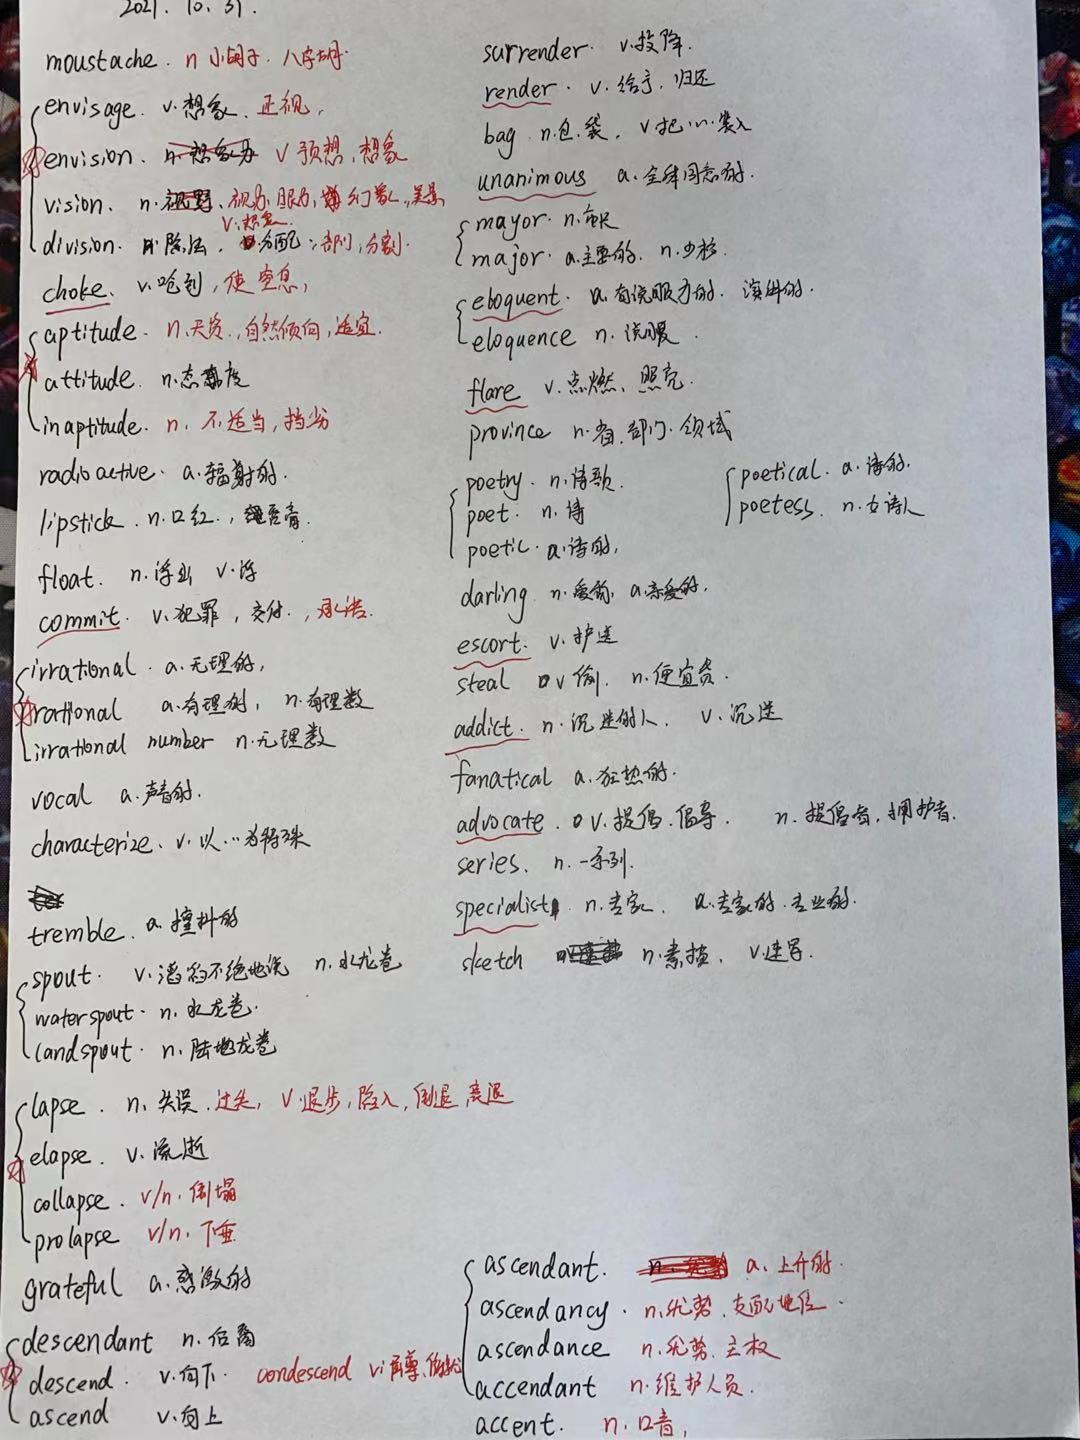 2021. 10. 31.
moustache. n 小胡子. 八字胡.
envisage. v.想象. 正视,
envision. v 预想, 想象
vision. n. 视力. 眼力, 幻象.
v.想象.
division. n 除法, 分配; 部门, 分割.
choke. v.呛到, 使窒息,
aptitude. n.天资, 自然倾向, 适宜.
attitude. n.态度
inaptitude. n. 不适当, 拙劣
radioactive. a.辐射的.
lipstick. n.口红.,
float. n.浮出 v.浮
commit. v.犯罪, 交付., 承诺.
irrational. a.无理的,
rational a.有理的, n.有理数
irrational number n.无理数
vocal a.声音的.
characterize. v.以…为特殊
tremble. a.撞抖的
spout. v.滔滔不绝地说 n.水龙卷
waterspout. n.水龙卷.
landspout. n.陆地龙卷
lapse. n.失误.过失, v.退步, 陷入, 倒退,衰退
elapse. v.流逝
collapse. v/n.倒塌
prolapse v/n.下垂
grateful a.感激的
descendant n.后裔
descend. v.向下. condescend v.
ascend v.向上
surrender. v.投降.
render. v.给予, 归还
bag n.包.袋, v把…装入
unanimous a.全体同意的.
mayor. n.市长
major. a.主要的. n.少校.
eboquent. a.有说服力的. 演讲的.
eboquence n.说服.
flare v.点燃、照亮.
province n.省.部门.领域
poetry. n.诗歌.
poet. n.诗
poetic. a.诗的,
poetical. a.诗的.
poetess. n.女诗人
darling n.爱称, a.亲爱的.
escort. v.护送
steal v偷. n.便宜货.
addict. n.沉迷的人. v.沉迷
fanatical a.狂热的.
advocate. v.提倡.倡导. n.提倡者,拥护者.
series. n.一系列.
specialist. n.专家. a.专家的.专业的.
sketch n.素描. v.速写.
ascendant. a.上升的.
ascendancy. n.优势.支配地位.
ascendance n.优势.主权
accendant n.维护人员.
accent. n.口音,